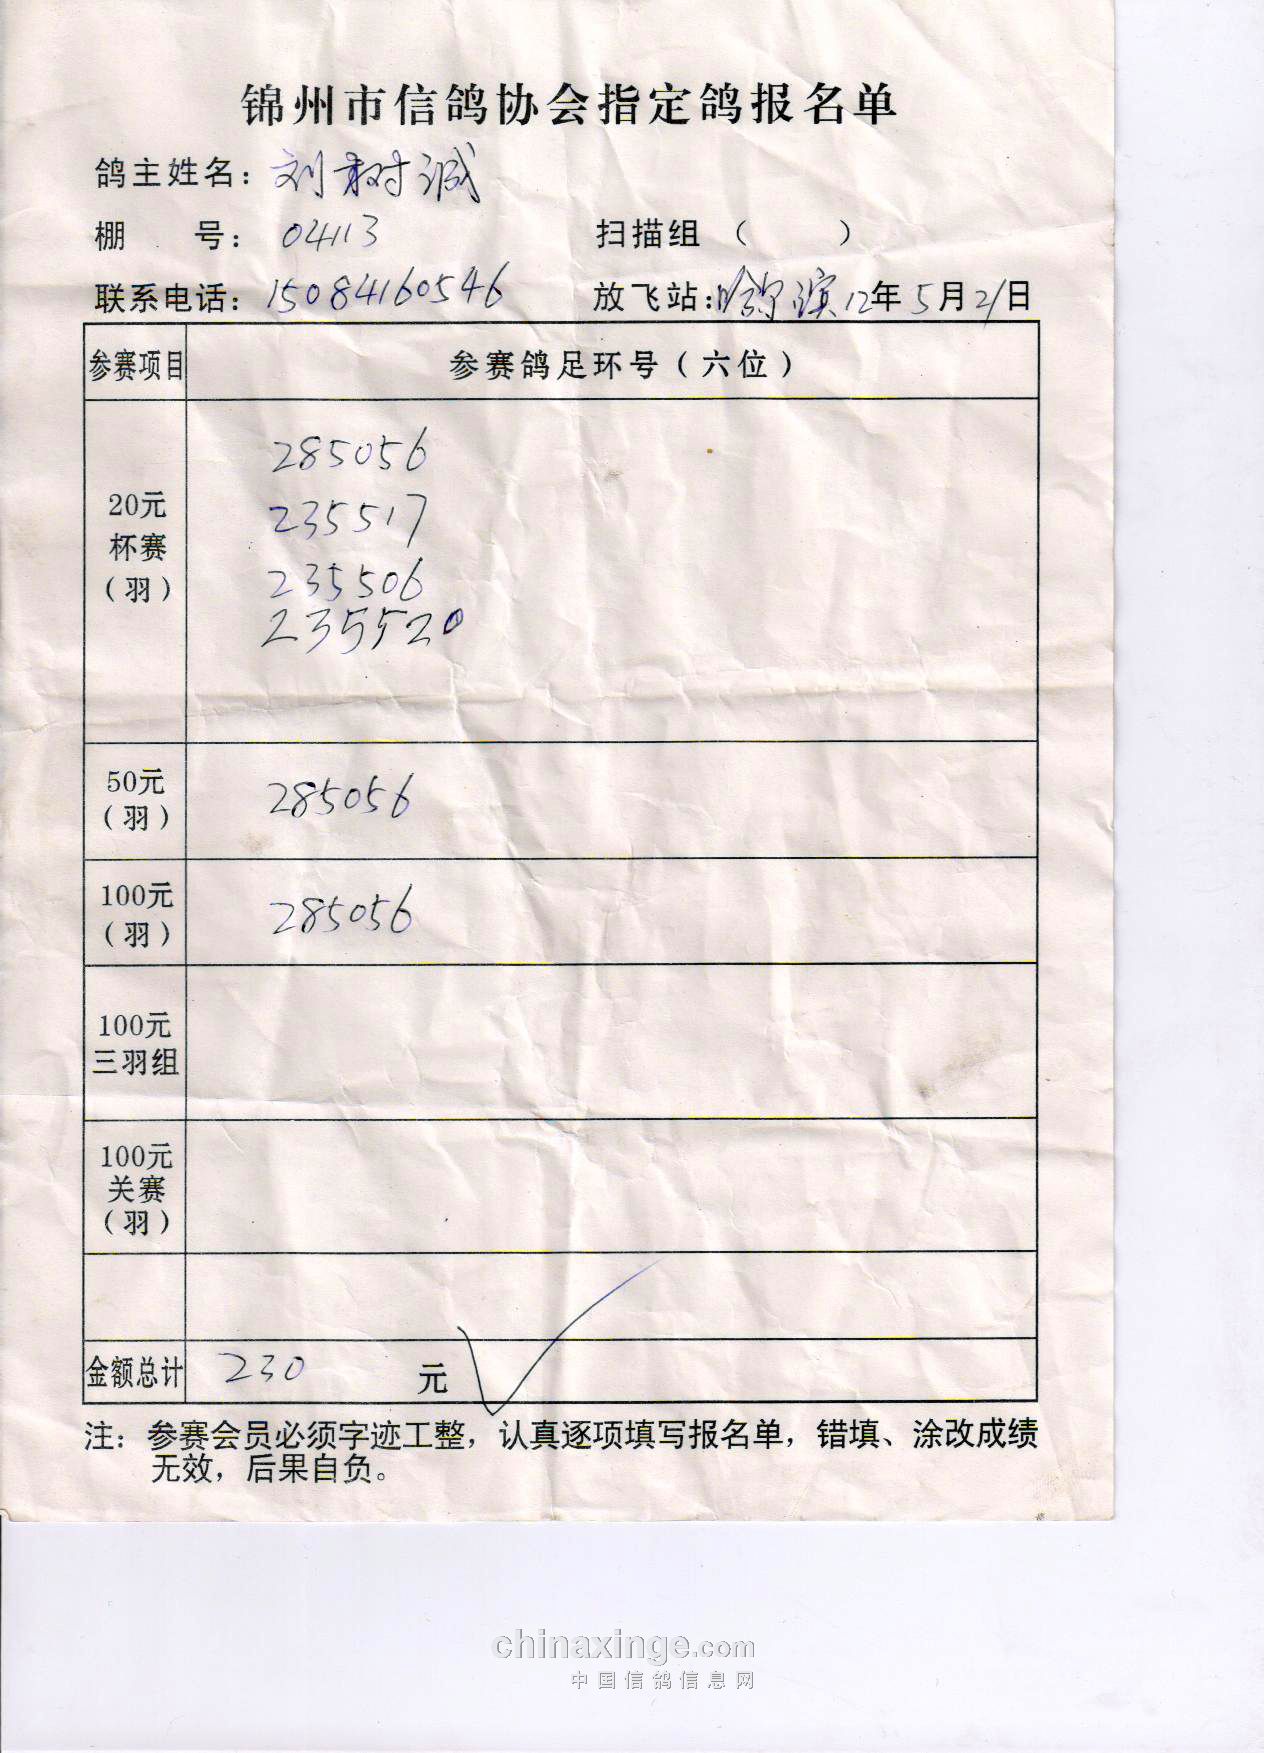 锦州市信鸽协会指定鸽报名单
鸽主姓名：刘树诚
棚 号：04113 扫描组（ ）
联系电话：15084160546 放飞站：哈尔滨 12年5月21日
参赛项目 参赛鸽足环号（六位）
20元
杯赛
（羽）
285056
235517
235506
235520
50元
（羽）
285056
100元
（羽）
285056
100元
三羽组
100元
关赛
（羽）
金额总计 230 元
注：参赛会员必须字迹工整，认真逐项填写报名单，错填、涂改成绩
无效，后果自负。
chinaxinge.com
中国信鸽信息网